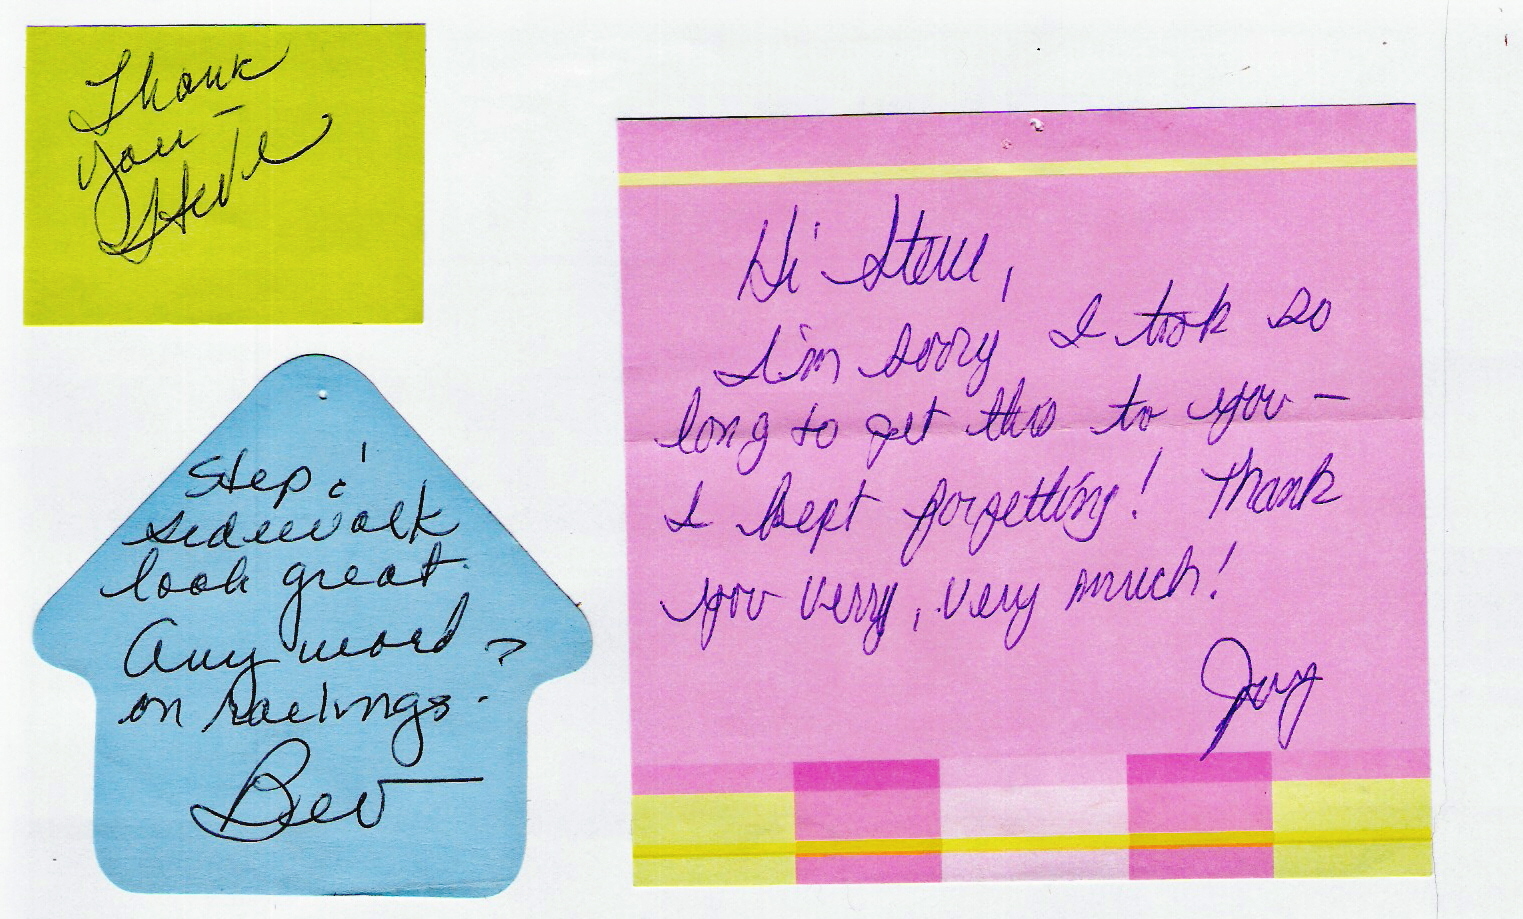 Thank
you –
Steve
Step &
sidewalk
look great.
Any word ?
on railings.
Bev
Hi Steve,
I'm sorry I took so
long to get this to you –
I kept forgetting! Thank
you very, very much!